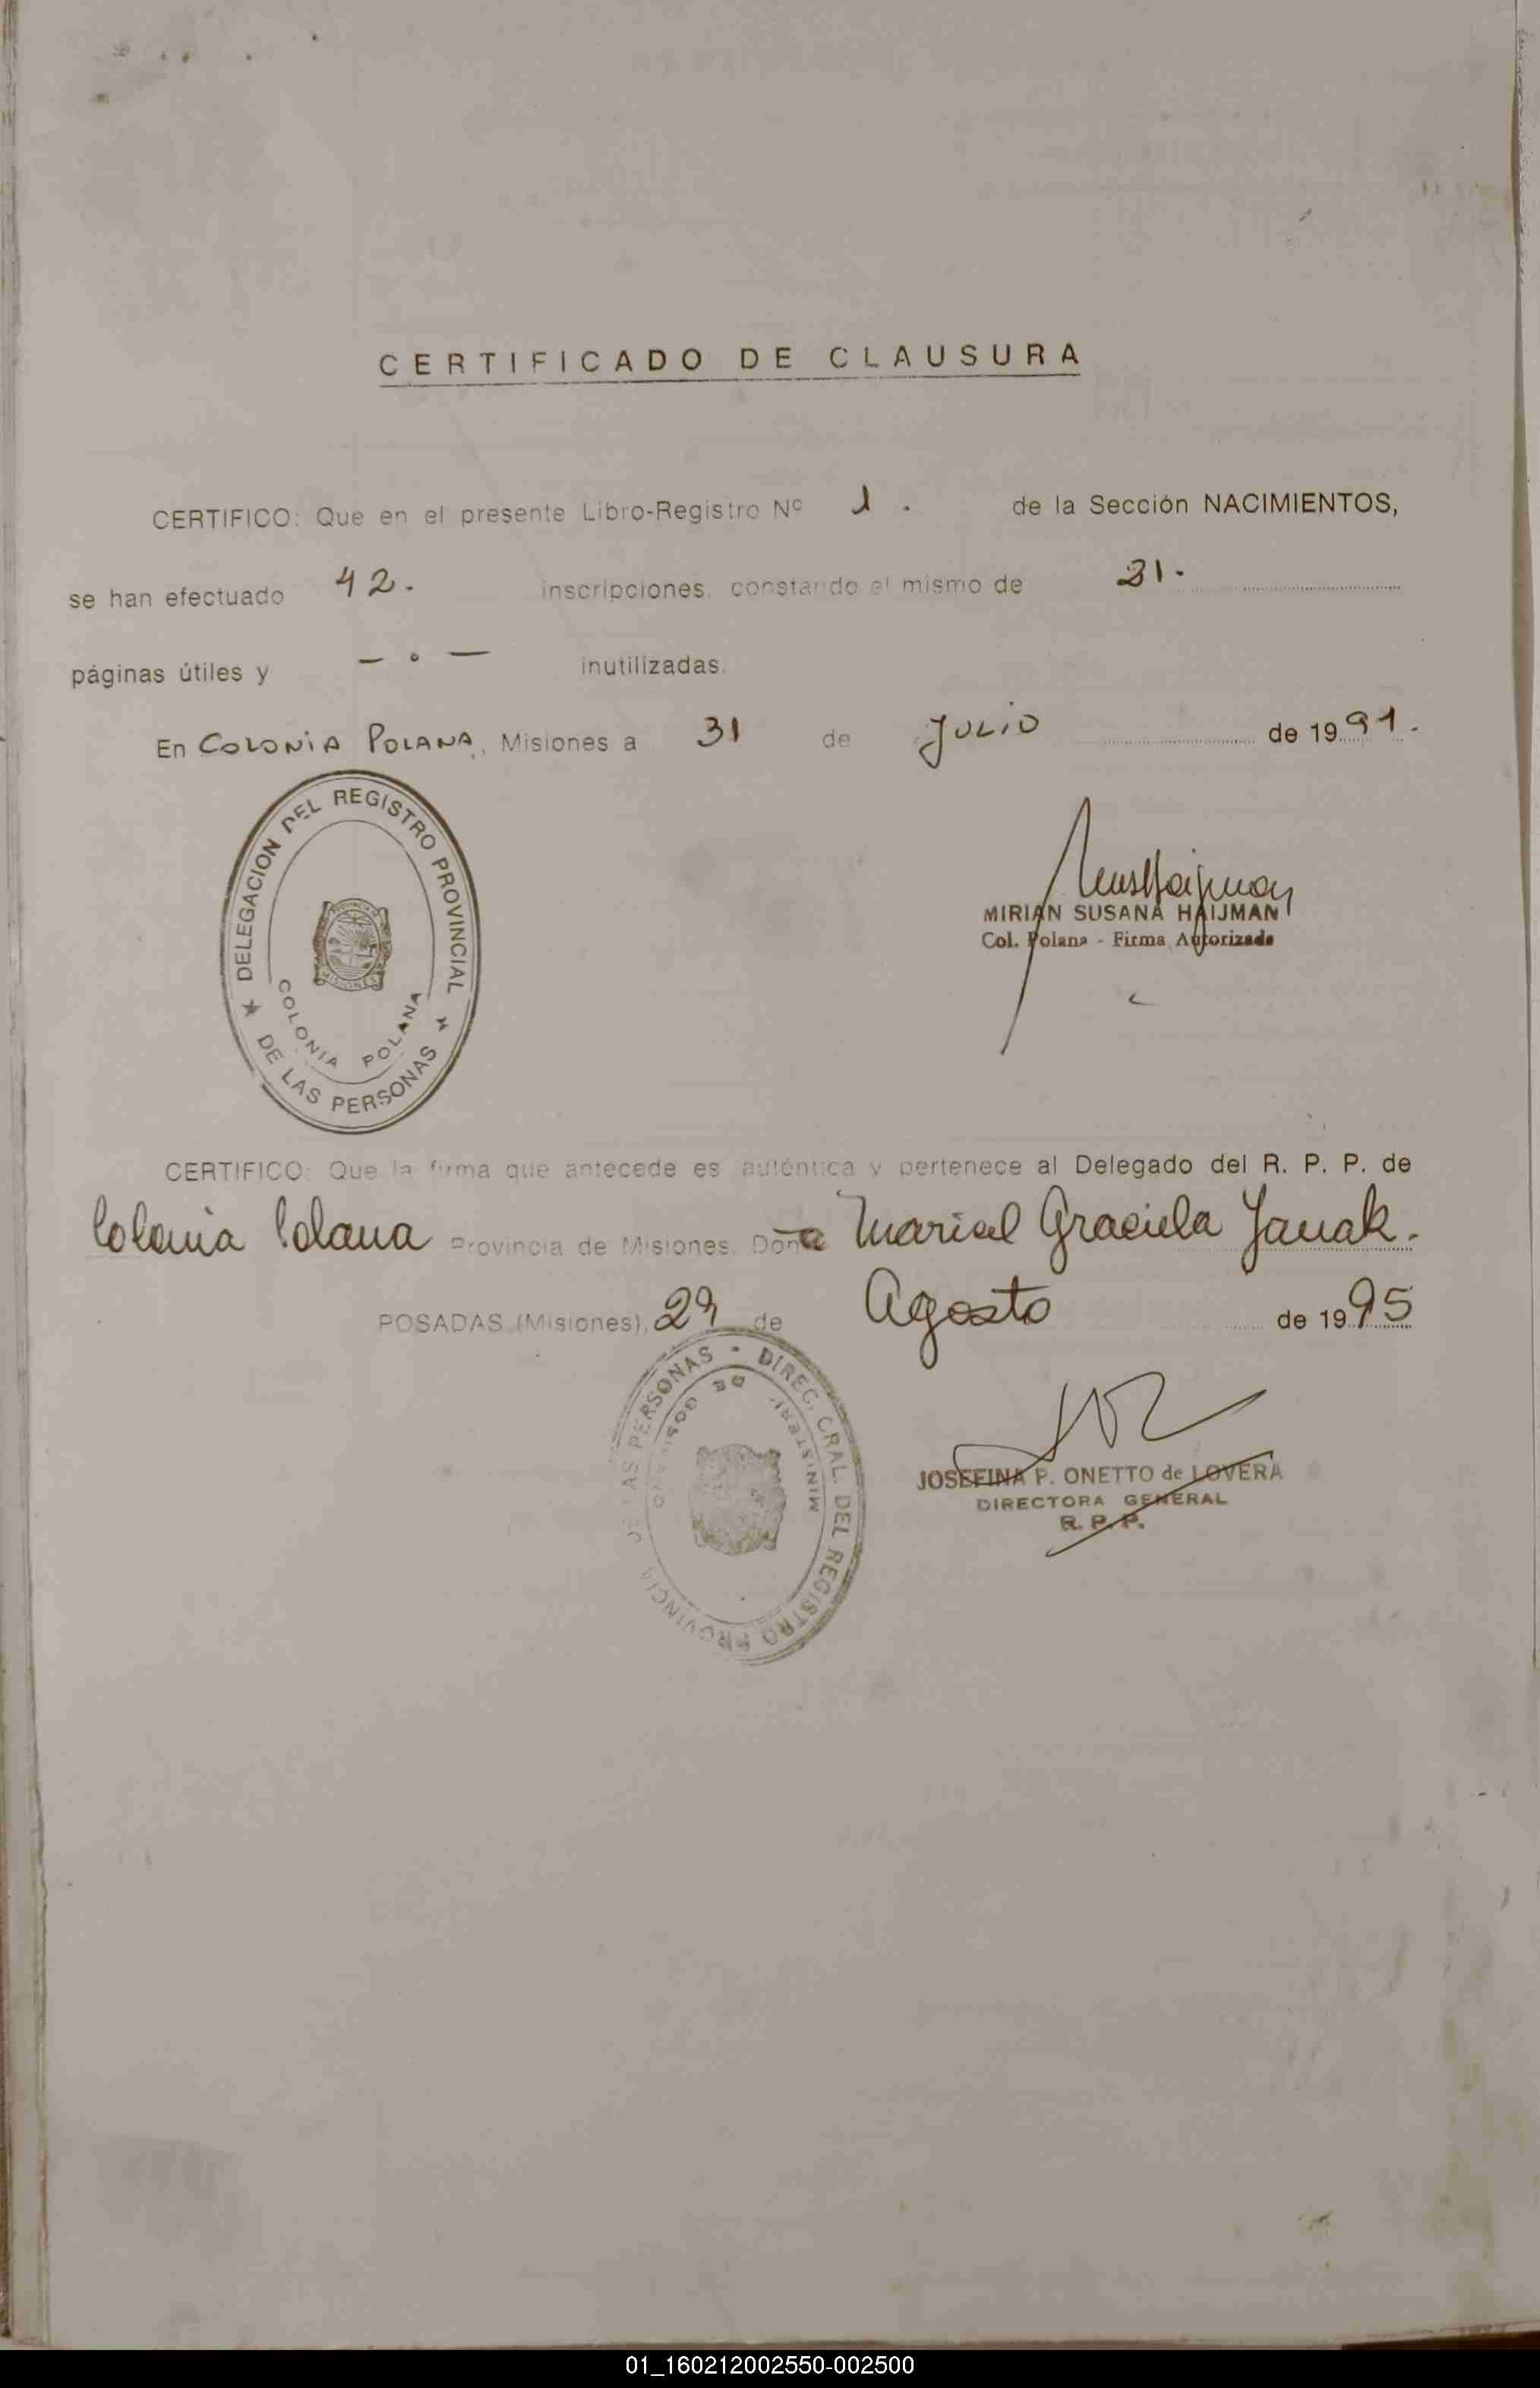 CERTIFICADO DE CLAUSURA
CERTIFICO: Que en el presente Libro-Registro Nº 1. de la Sección NACIMIENTOS,
se han efectuado 42. inscripciones, constando el mismo de 31.
páginas útiles y — . — inutilizadas.
En COLONIA POLANA, Misiones a 31 de JULIO de 1991.
DELEGACION DEL REGISTRO PROVINCIAL
DE LAS PERSONAS
COLONIA POLANA
PROVINCIA DE
MISIONES
MIRIAN SUSANA HAIJMAN
Col. Polana - Firma Autorizada
CERTIFICO: Que la firma que antecede es auténtica y pertenece al Delegado del R. P. P. de
Colonia Polana Provincia de Misiones. Doña Marisel Graciela Janak.
POSADAS (Misiones), 29 de Agosto de 1995
DIREC. GRAL. DEL REGISTRO PROVINCIAL DE LAS PERSONAS
MINISTERIO DE GOBIERNO
JOSEFINA P. ONETTO de LOVERA
DIRECTORA GENERAL
R. P. P.
01_160212002550-002500